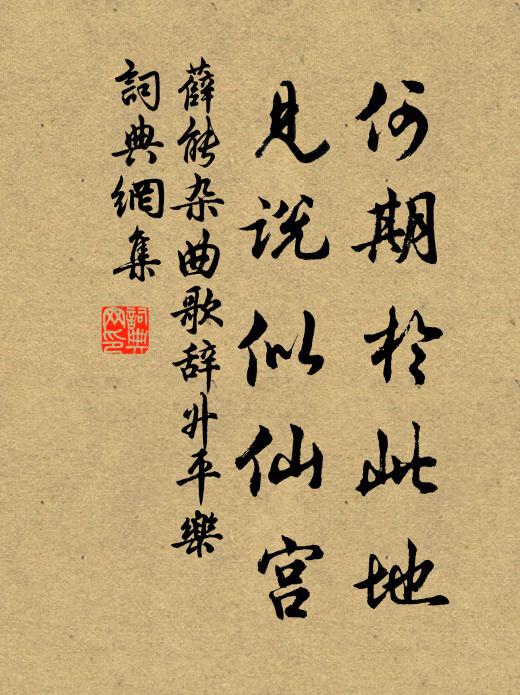 何期於此地
見説似仙宫
薛能杂曲歌辞升平樂
詞典網集
詞典网印